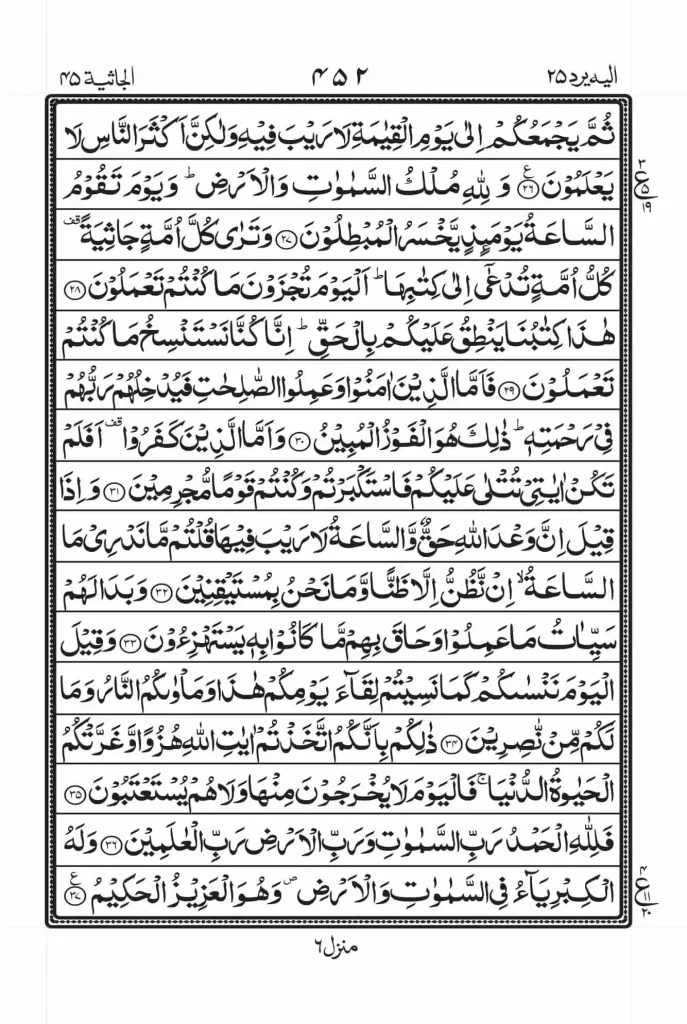 الیه یرد ۲۵
۴۵۲
الجاثیة ۴۵
ثُمَّ یَجۡمَعُکُمۡ اِلٰی یَوۡمِ الۡقِیٰمَۃِ لَا رَیۡبَ فِیۡہِ وَلٰکِنَّ اَکۡثَرَ النَّاسِ لَا
یَعۡلَمُوۡنَ ﴿۲۶﴾ ع وَ لِلّٰہِ مُلۡکُ السَّمٰوٰتِ وَالۡاَرۡضِ ؕ وَیَوۡمَ تَقُوۡمُ
۳
ع
۵
۱۹
السَّاعَۃُ یَوۡمَئِذٍ یَّخۡسَرُ الۡمُبۡطِلُوۡنَ ﴿۲۷﴾ وَتَرٰی کُلَّ اُمَّۃٍ جَاثِیَۃً ۟
کُلُّ اُمَّۃٍ تُدۡعٰۤی اِلٰی کِتٰبِہَا ؕ اَلۡیَوۡمَ تُجۡزَوۡنَ مَا کُنۡتُمۡ تَعۡمَلُوۡنَ ﴿۲۸﴾
ہٰذَا کِتٰبُنَا یَنۡطِقُ عَلَیۡکُمۡ بِالۡحَقِّ ؕ اِنَّا کُنَّا نَسۡتَنۡسِخُ مَا کُنۡتُمۡ
تَعۡمَلُوۡنَ ﴿۲۹﴾ فَاَمَّا الَّذِیۡنَ اٰمَنُوۡا وَعَمِلُوا الصّٰلِحٰتِ فَیُدۡخِلُہُمۡ رَبُّہُمۡ
فِیۡ رَحۡمَتِہٖ ؕ ذٰلِکَ ہُوَ الۡفَوۡزُ الۡمُبِیۡنُ ﴿۳۰﴾ وَاَمَّا الَّذِیۡنَ کَفَرُوۡا ۟ اَفَلَمۡ
تَکُنۡ اٰیٰتِیۡ تُتۡلٰی عَلَیۡکُمۡ فَاسۡتَکۡبَرۡتُمۡ وَکُنۡتُمۡ قَوۡمًا مُّجۡرِمِیۡنَ ﴿۳۱﴾ وَاِذَا
قِیۡلَ اِنَّ وَعۡدَ اللّٰہِ حَقٌّ وَّالسَّاعَۃُ لَا رَیۡبَ فِیۡہَا قُلۡتُمۡ مَّا نَدۡرِیۡ مَا
السَّاعَۃُ ۙ اِنۡ نَّظُنُّ اِلَّا ظَنًّا وَّمَا نَحۡنُ بِمُسۡتَیۡقِنِیۡنَ ﴿۳۲﴾ وَبَدَا لَہُمۡ
سَیِّاٰتُ مَا عَمِلُوۡا وَحَاقَ بِہِمۡ مَّا کَانُوۡا بِہٖ یَسۡتَہۡزِءُوۡنَ ﴿۳۳﴾ وَقِیۡلَ
الۡیَوۡمَ نَنۡسٰکُمۡ کَمَا نَسِیۡتُمۡ لِقَآءَ یَوۡمِکُمۡ ہٰذَا وَمَاۡوٰىکُمُ النَّارُ وَمَا
لَکُمۡ مِّنۡ نّٰصِرِیۡنَ ﴿۳۴﴾ ذٰلِکُمۡ بِاَنَّکُمُ اتَّخَذۡتُمۡ اٰیٰتِ اللّٰہِ ہُزُوًا وَّغَرَّتۡکُمُ
الۡحَیٰوۃُ الدُّنۡیَا ۚ فَالۡیَوۡمَ لَا یُخۡرَجُوۡنَ مِنۡہَا وَلَا ہُمۡ یُسۡتَعۡتَبُوۡنَ ﴿۳۵﴾
فَلِلّٰہِ الۡحَمۡدُ رَبِّ السَّمٰوٰتِ وَرَبِّ الۡاَرۡضِ رَبِّ الۡعٰلَمِیۡنَ ﴿۳۶﴾ وَلَہُ
الۡکِبۡرِیَآءُ فِی السَّمٰوٰتِ وَالۡاَرۡضِ ۪ وَہُوَ الۡعَزِیۡزُ الۡحَکِیۡمُ ﴿۳۷﴾ ع
۴
ع
۱۱
۲۰
منزل ۶